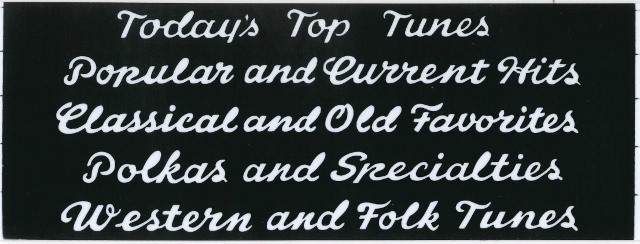 Today's Top Tunes
Popular and Current Hits
Classical and Old Favorites
Polkas and Specialties
Western and Folk Tunes